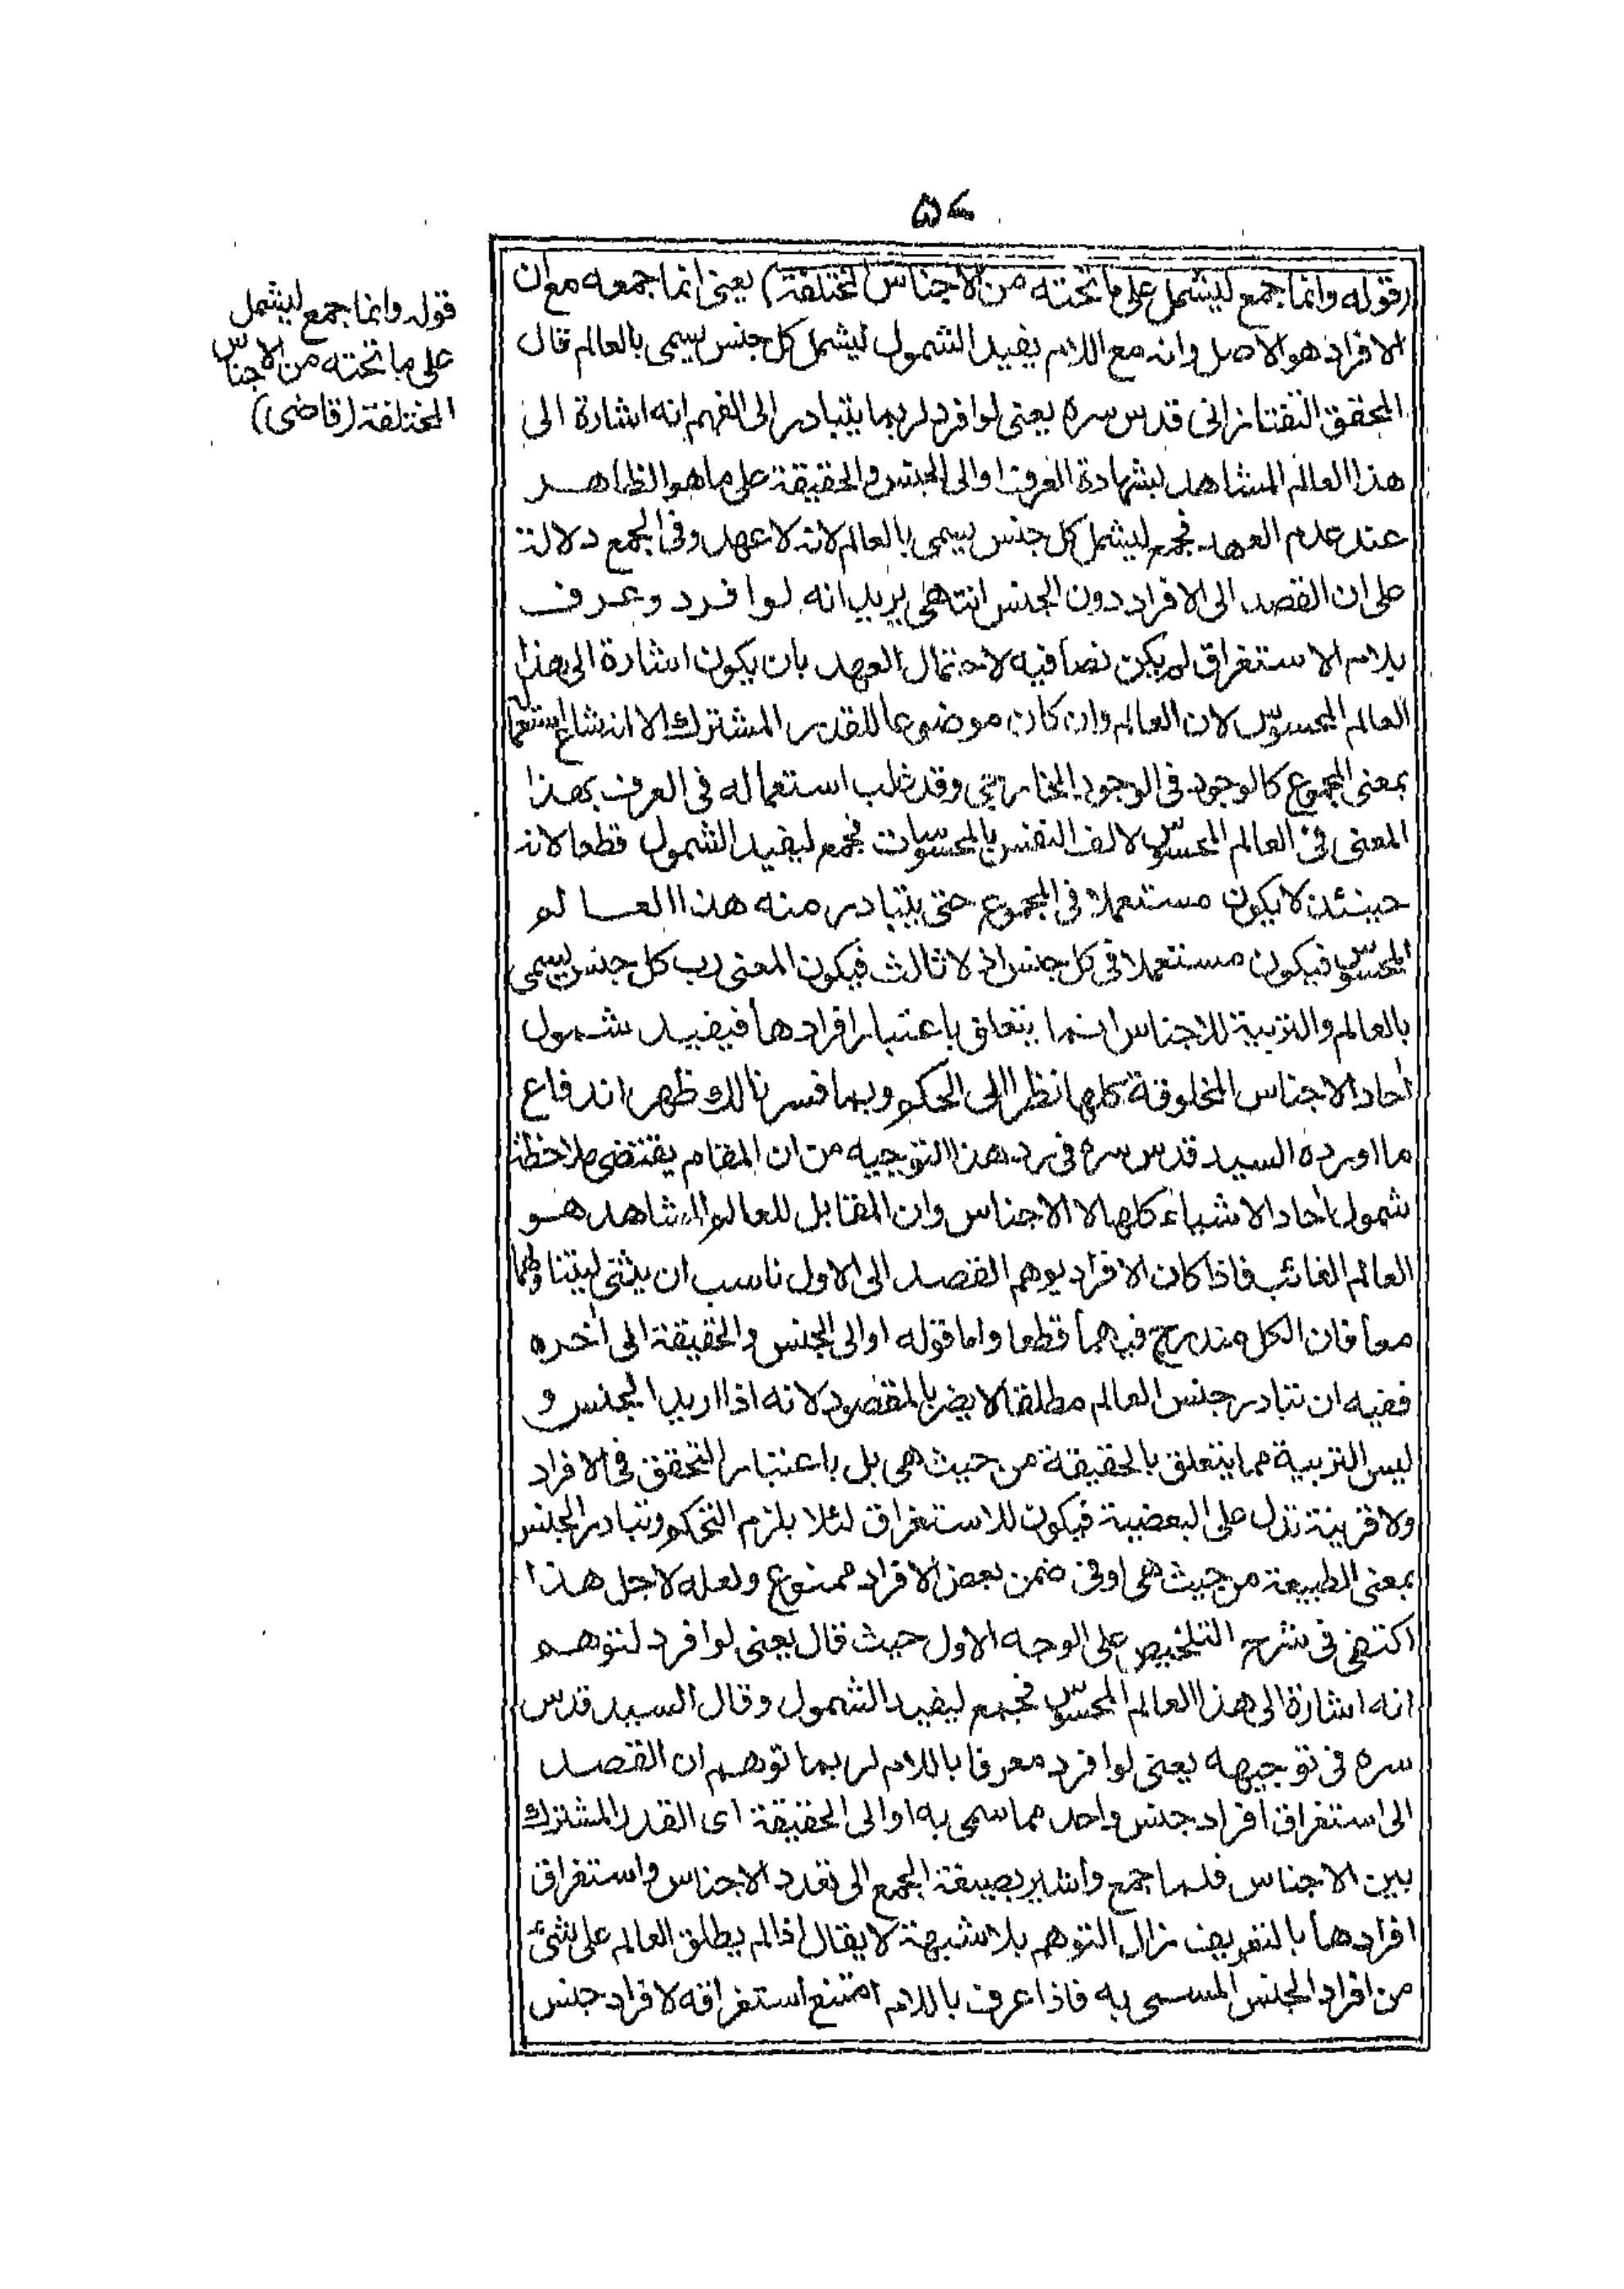 ۵۷
(قوله وانما جمع ليشمل على ما تحته من الاجناس المختلفة) يعنى انما جمعه مع ان
الافراد هو الاصل وانه مع اللام يفيد الشمول ليشمل كل جنس يسمى بالعالم قال
المحقق التفتازانى قدس سره يعنى لوافرد لربما يتبادر الى الفهم انه اشارة الى
هذا العالم المشاهد بشهادة العرف او الى الجنس والحقيقة على ما هو الظاهر
عند عدم العهد فجمع ليشمل كل جنس يسمى بالعالم لانه لا عهد وفى الجمع دلالة
على ان القصد الى الافراد دون الجنس انتهى يريد انه لوا فرد وعرف
بلام الاستغراق لم يكن نصا فيه لاحتمال العهد بان يكون اشارة الى هذا
العالم المحسوس لان العالم وان كان موضوعا للقدر المشترك الا انه شاع استعما
بمعنى المجموع كالوجود فى الوجود الخارجى وقد غلب استعماله فى العرف بهذا
المعنى فى العالم المحسوس لالف النفس بالمحسوسات فجمع ليفيد الشمول قطعا لانه
حينئذ لا يكون مستعملا فى المجموع حتى يتبادر منه هذا العالم
المحسوس فيكون مستعملا فى كل جنس اذ لا ثالث فيكون المعنى رب كل جنس يسمى
بالعالم والتربية للاجناس انما يتعلق باعتبار افرادها فيفيد شمول
أحاد الاجناس المخلوقة كلها نظرا الى الحكم وبما فسرنا لك ظهر اندفاع
ما اورده السيد قدس سره فى رد هذا التوجيه من ان المقام يقتضى ملاحظة
شمول أحاد الاشياء كلها لا الاجناس وان المقابل للعالم المشاهد هو
العالم الغائب فاذا كان الافراد يوهم القصد الى الاول ناسب ان يثنى ليتناولهما
معا فان الكل مندرج فيهما قطعا واما قوله او الى الجنس والحقيقة الى أخره
ففيه ان تبادر جنس العالم مطلقا لا يضر بالمقصود لانه اذا اريد الجنس و
ليس التربية مما يتعلق بالحقيقة من حيث هى بل باعتبار التحقق فى الافراد
ولا قرينة تدل على البعضية فيكون للاستغراق لئلا يلزم التحكم وتبادر الجنس
بمعنى الطبيعة من حيث هى او فى ضمن بعض الافراد ممنوع ولعله لاجل هذا
اكتفى فى شرح التلخيص على الوجه الاول حيث قال يعنى لوا فرد لتوهم
انه اشارة الى هذا العالم المحسوس فجمع ليفيد الشمول وقال السيد قدس
سره فى توجيهه يعنى لوا فرد معرفا باللام لربما توهم ان القصد
الى استغراق افراد جنس واحد مما سمى به او الى الحقيقة اى القدر المشترك
بين الاجناس فلما جمع واشير بصيغة الجمع الى تعدد الاجناس واستغراق
افرادها بالتعريف زال التوهم بلا شبهة لا يقال اذا لم يطلق العالم على شئ
من افراد الجنس المسمى به فاذا عرف باللام امتنع استغراقه لافراد جنس
قوله وانما جمع ليشمل
على ما تحته من الاجناس
المختلفة (قاضى)